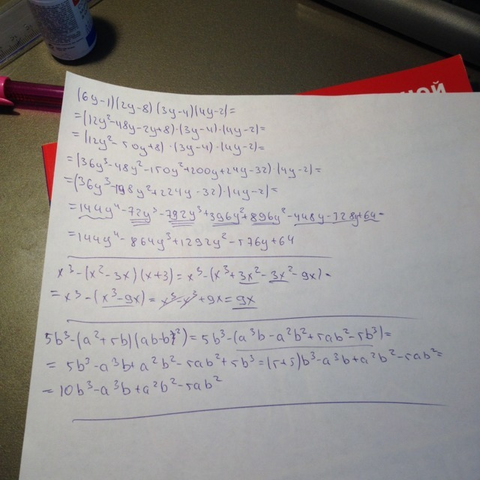 НОЙ
(6y-1)(2y-8)(3y-4)(4y-2)=
=(12y²-48y-2y+8)·(3y-4)·(4y-2)=
=(12y²-50y+8)·(3y-4)·(4y-2)=
=(36y³-48y²-150y²+200y+24y-32)·(4y-2)=
=(36y³-198y²+224y-32)·(4y-2)=
=144y⁴-72y³-792y³+396y²+896y²-448y-328y+64=
=144y⁴-864y³+1292y²-576y+64
x³-(x²-3x)(x+3)=x³-(x³+3x²-3x²-9x)=
=x³-(x³-9x)=x³-x³+9x=9x
5b³-(a²+5b)(ab-b²)=5b³-(a³b-a²b²+5ab²-5b³)=
=5b³-a³b+a²b²-5ab²+5b³=(5+5)b³-a³b+a²b²-5ab²=
=10b³-a³b+a²b²-5ab²